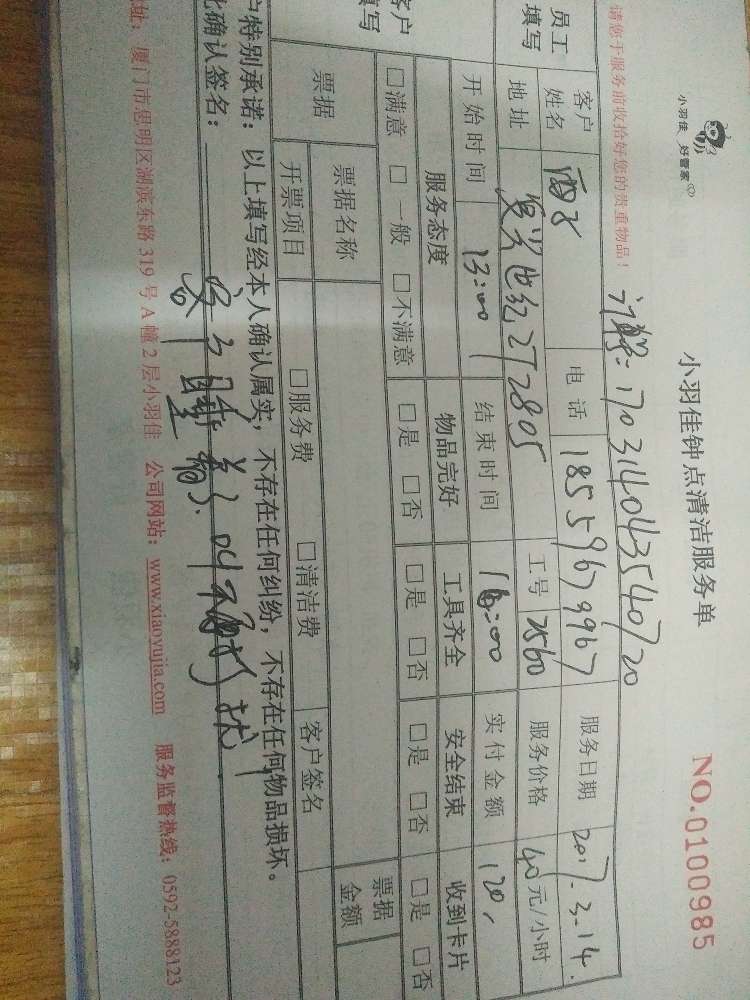 小羽佳 好管家
小羽佳钟点清洁服务单
NO.0100985
请您于服务前收拾好您的贵重物品!
17031404354070
员工填写
客户姓名
电话 18559679967
服务日期 2017.3.14.
地址 27 2805
工号 2560
服务价格 40元/小时
开始时间 13:00
结束时间 16:00
实付金额 120.
客户填写
服务态度 物品完好 工具齐全 安全结束 收到卡片
□满意 □一般 □不满意 □是 □否 □是 □否 □是 □否 □是 □否
票据
票据名称
票据金额
开票项目 □服务费 □清洁费 客户签名
户特别承诺:以上填写经本人确认属实,不存在任何纠纷,不存在任何物品损坏。
此确认签名:
地址:厦门市思明区湖滨东路 319 号 A 幢 2 层小羽佳 公司网站:www.xiaoyujia.com 服务监督热线:0592-5888123